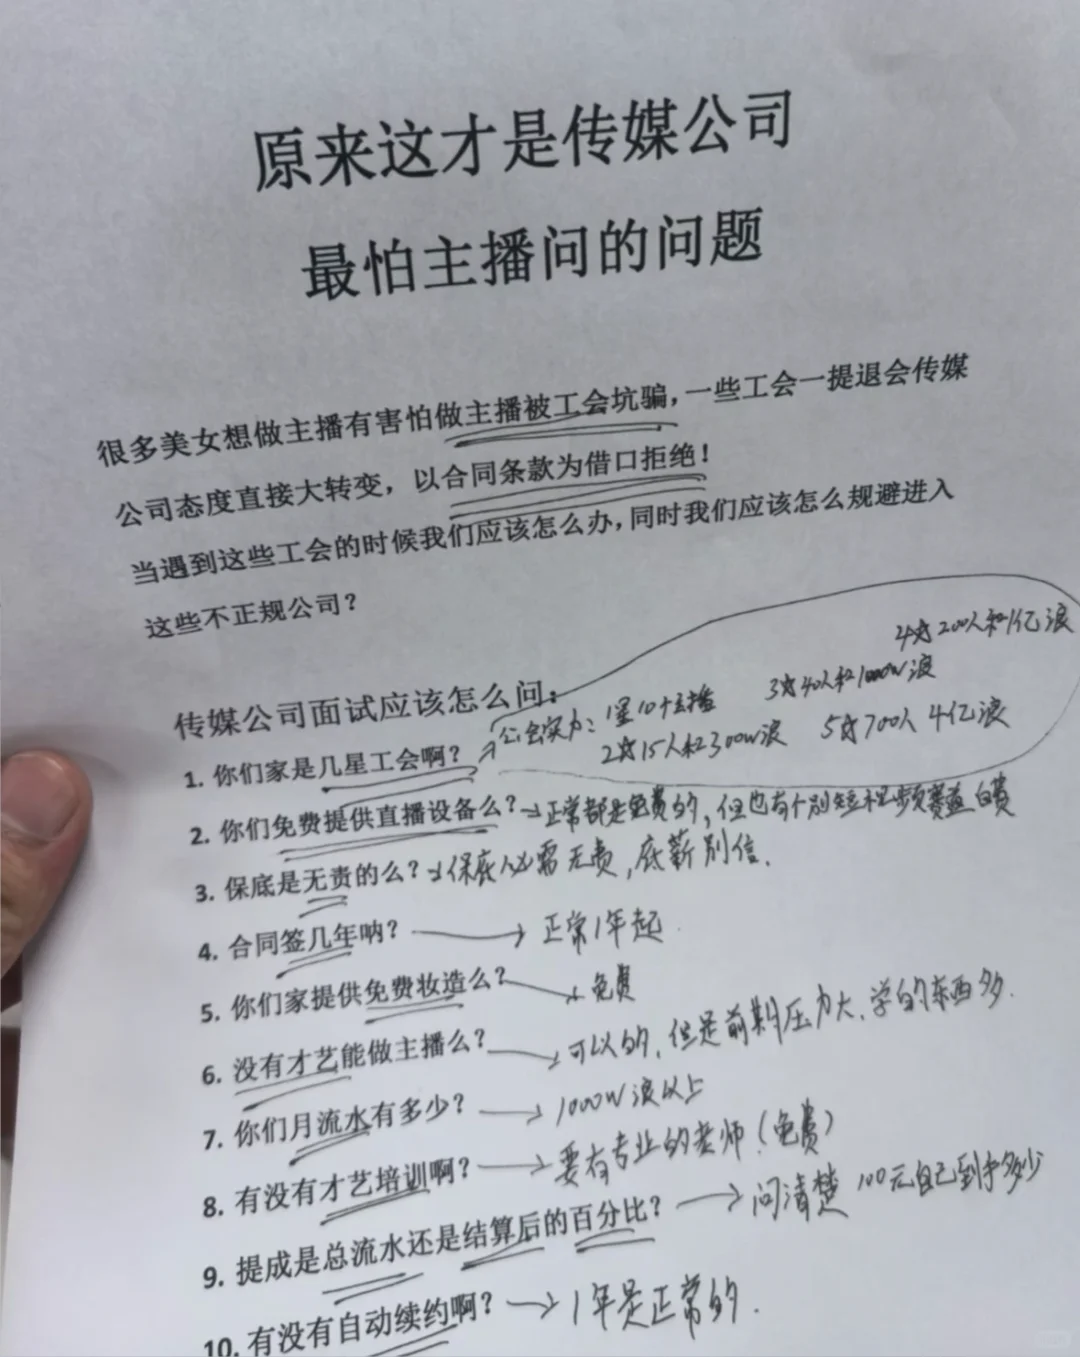 原来这才是传媒公司
最怕主播问的问题
很多美女想做主播有害怕做主播被工会坑骗，一些工会一提退会传媒
公司态度直接大转变，以合同条款为借口拒绝！
当遇到这些工会的时候我们应该怎么办，同时我们应该怎么规避进入
这些不正规公司？
传媒公司面试应该怎么问：
公会实力：1星10个主播 3☆40人和1000w浪 4☆200人和1亿浪
2☆15人和300w浪 5☆700人4亿浪
1. 你们家是几星工会啊？
2. 你们免费提供直播设备么？→正常都是免费的，但也有个别短视频赛道自费
3. 保底是无责的么？→保底必需无责，底薪别信.
4. 合同签几年呐？→正常1年起.
5. 你们家提供免费妆造么？→免费
6. 没有才艺能做主播么？→可以的，但是前期压力大、学的东西多.
7. 你们月流水有多少？→1000W浪以上
8. 有没有才艺培训啊？→要有专业的老师（免费）
9. 提成是总流水还是结算后的百分比？→问清楚 100元自己到手多少
10. 有没有自动续约啊？→1年是正常的.